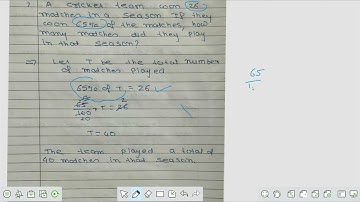 A cricket team won 26
matches in a season. If they
won 65% of the matches, how
many matches did they play
in that season?
⇒ Let T be the total number
of matches played
65% of T = 26
65/100 × T = 26
20
2
T = 40
The team played a total of
40 matches in that season
65
T